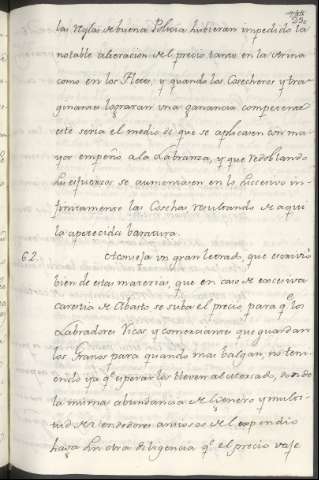 las reglas de buena Policia hubieran impedido la
notable alteracion del precio tanto en la Arina
como en los Fletes, y quando los Cosecheros y tra-
ginantes lograran una ganancia competente
este seria el medio de que se aplicasen con ma-
yor empeño a la Labranza, y que redoblando
sus esfuerzos se aumentasen en lo succesivo in-
finitamente las Cosechas resultando de aqui
la apetecida baratura.
62. Aconseja un gran letrado, que escrivió
bien de estas materias, que en caso de excesiva
carestia de Abasto se suba el precio para q.e los
Labradores Ricos y comerciantes que guardan
los Granos para quando mas balgan, no tem-
endo ya q.e esperar los lleven al Mercado, donde
la misma abundancia del Genero y multi-
tud de vendedores ansiosos del expendio
haga sin otra diligencia q.e el precio vaje